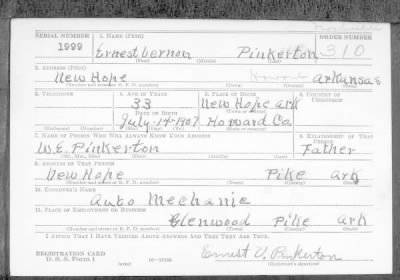 SERIAL NUMBER 1. NAME (Print) ORDER NUMBER
1999 Ernest Vernon Pinkerton 310
(First) (Middle) (Last)
2. ADDRESS (Print)
New Hope Howard Arkansas
(Number and street or R. F. D. number) (Town) (County) (State)
3. TELEPHONE 4. AGE IN YEARS 5. PLACE OF BIRTH 6. COUNTRY OF CITIZENSHIP
33 New Hope Ark
DATE OF BIRTH
July-14-1907 Howard Co.
(Exchange) (Number) (Mo.) (Day) (Yr.) (State or country)
7. NAME OF PERSON WHO WILL ALWAYS KNOW YOUR ADDRESS 8. RELATIONSHIP OF THAT PERSON
W.E. Pinkerton Father
(Mr., Mrs., Miss) (First) (Middle) (Last)
9. ADDRESS OF THAT PERSON
New Hope Pike Ark
(Number and street or R. F. D. number) (Town) (County) (State)
10. EMPLOYER'S NAME
Auto Mechanic
11. PLACE OF EMPLOYMENT OR BUSINESS
Glenwood Pike Ark
(Number and street or R. F. D. number) (Town) (County) (State)
I AFFIRM THAT I HAVE VERIFIED ABOVE ANSWERS AND THAT THEY ARE TRUE.
REGISTRATION CARD
D. S. S. Form 1 (over) Ernest V. Pinkerton
(Registrant's signature)